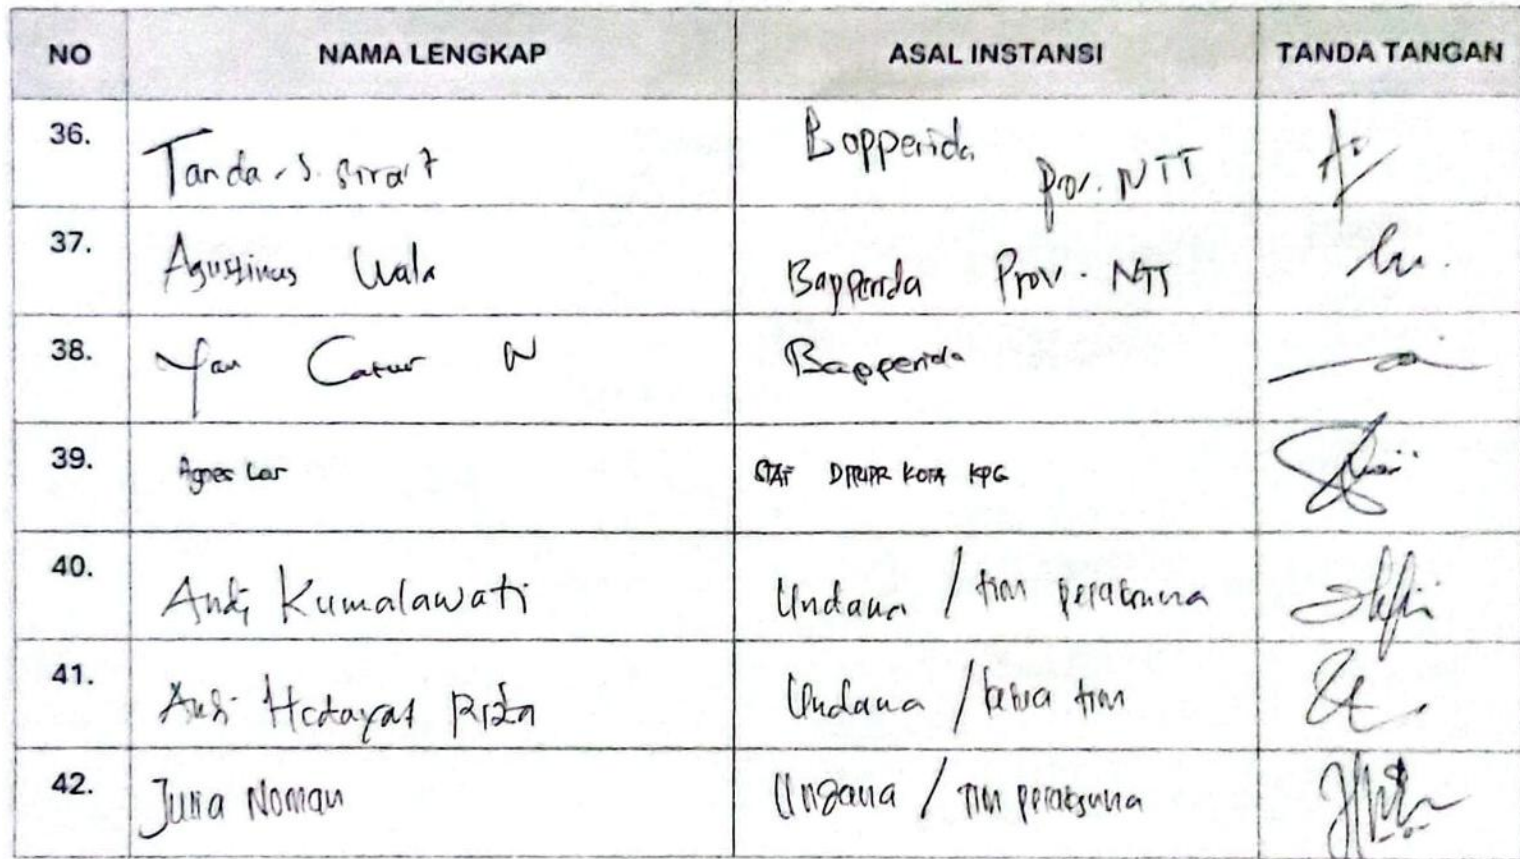 NO NAMA LENGKAP ASAL INSTANSI TANDA TANGAN
36. Tanda. S. Sirait Bapperida Prov. NTT
37. Agustinus Wala Bapperida Prov. NTT
38. Yan Catur W Bapperida
39. Agnes Lar STAF DPUPR KOTA KPG
40. Andi Kumalawati Undana / tim pelaksana
41. Andi Hidayat Rizka Undana / ketua tim
42. Julia Noman Undana / Tim pelaksana